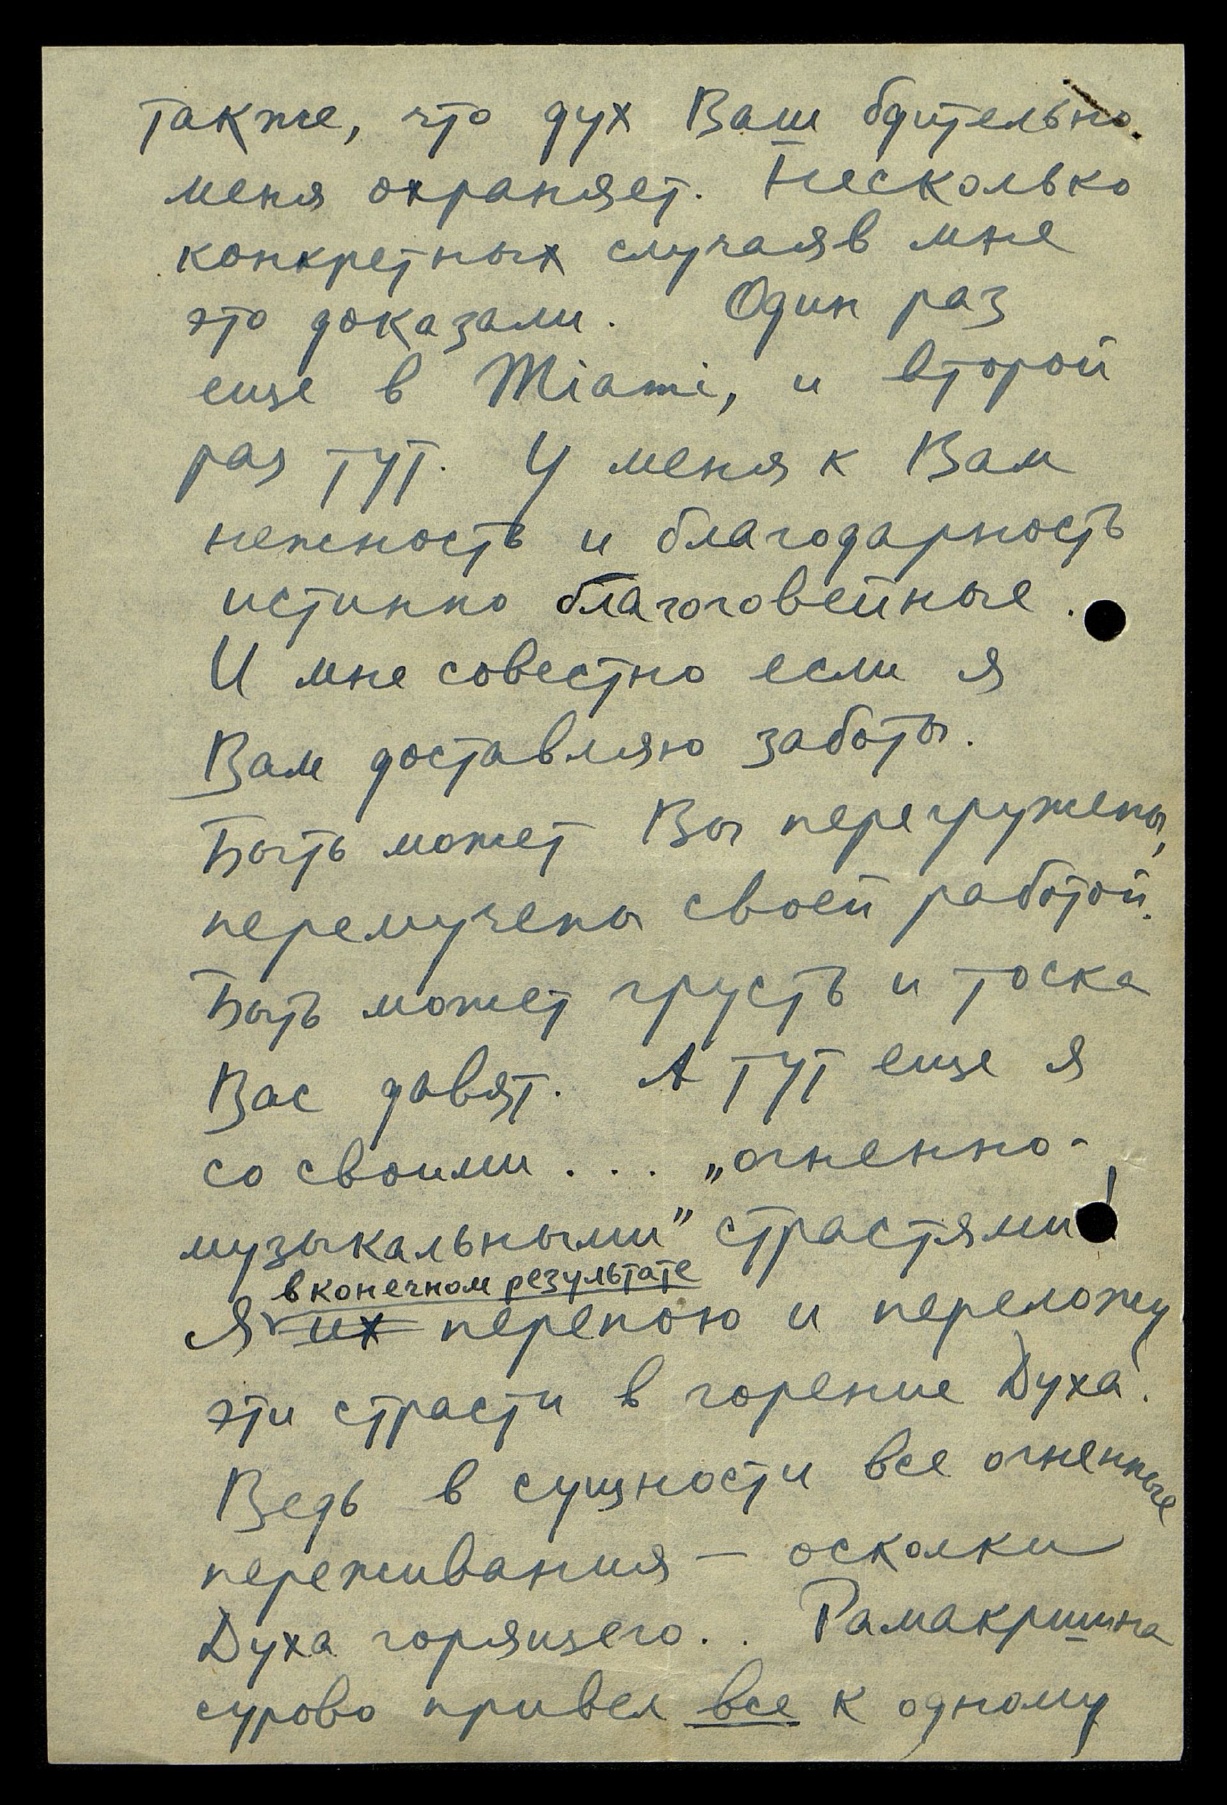 также, что дух Ваш бдительно
меня охраняет. Несколько
конкретных случаяв мне
это доказали. Один раз
еще в Miami, и второй
раз тут. У меня к Вам
нежность и благодарность
истинно благоговейные.
И мне совестно если я
Вам доставляю заботы.
Быть может Вы перегружены,
перемучены своей работой.
Быть может грусть и тоска
Вас давят. А тут еще я
со своими... „огненно-
музыкальными" страстями!
в конечном результате
Я их перепою и переложу
эти страсти в горение Духа.
Ведь в сущности все огненные
переживания — осколки
Духа горящего.. Рамакришна
сурово привел все к одному